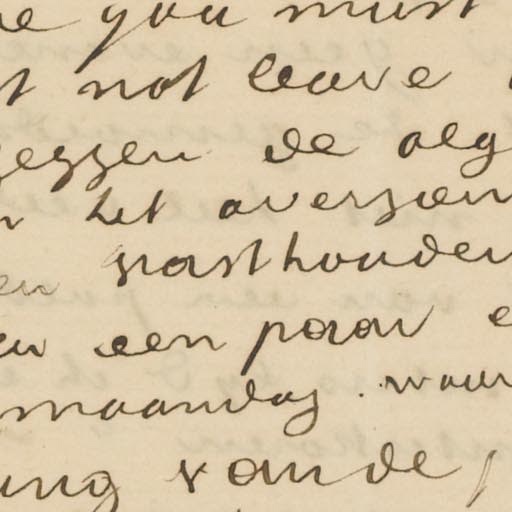 you must
not leave
zeggen de alg
het overzien
vasthouden
een paar
maandag. waar
ing vande